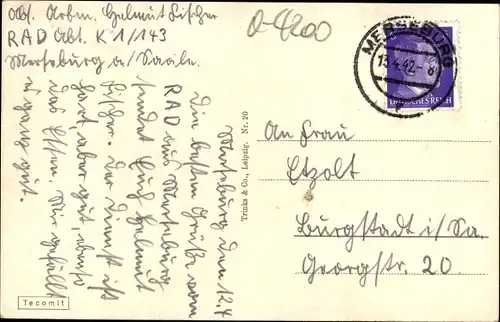 Abs. Arbm. Helmut Fischer
RAD Abt. K 1/143
Merseburg a/Saale.
O-4200
MERSEBURG
13.4.42.-8
DEUTSCHES REICH
Merseburg den 12.4.
Die besten Grüße vom
RAD aus Merseburg
sendet Euch Helmut
Fischer. Der Dienst ist
hart, aber gut, ebenso
das Essen. Mir gefällt
es ganz gut.
Trinks & Co., Leipzig. Nr. 20
An Frau
Etzolt
Burgstädt i/Sa.
Georgstr. 20
Tecomit